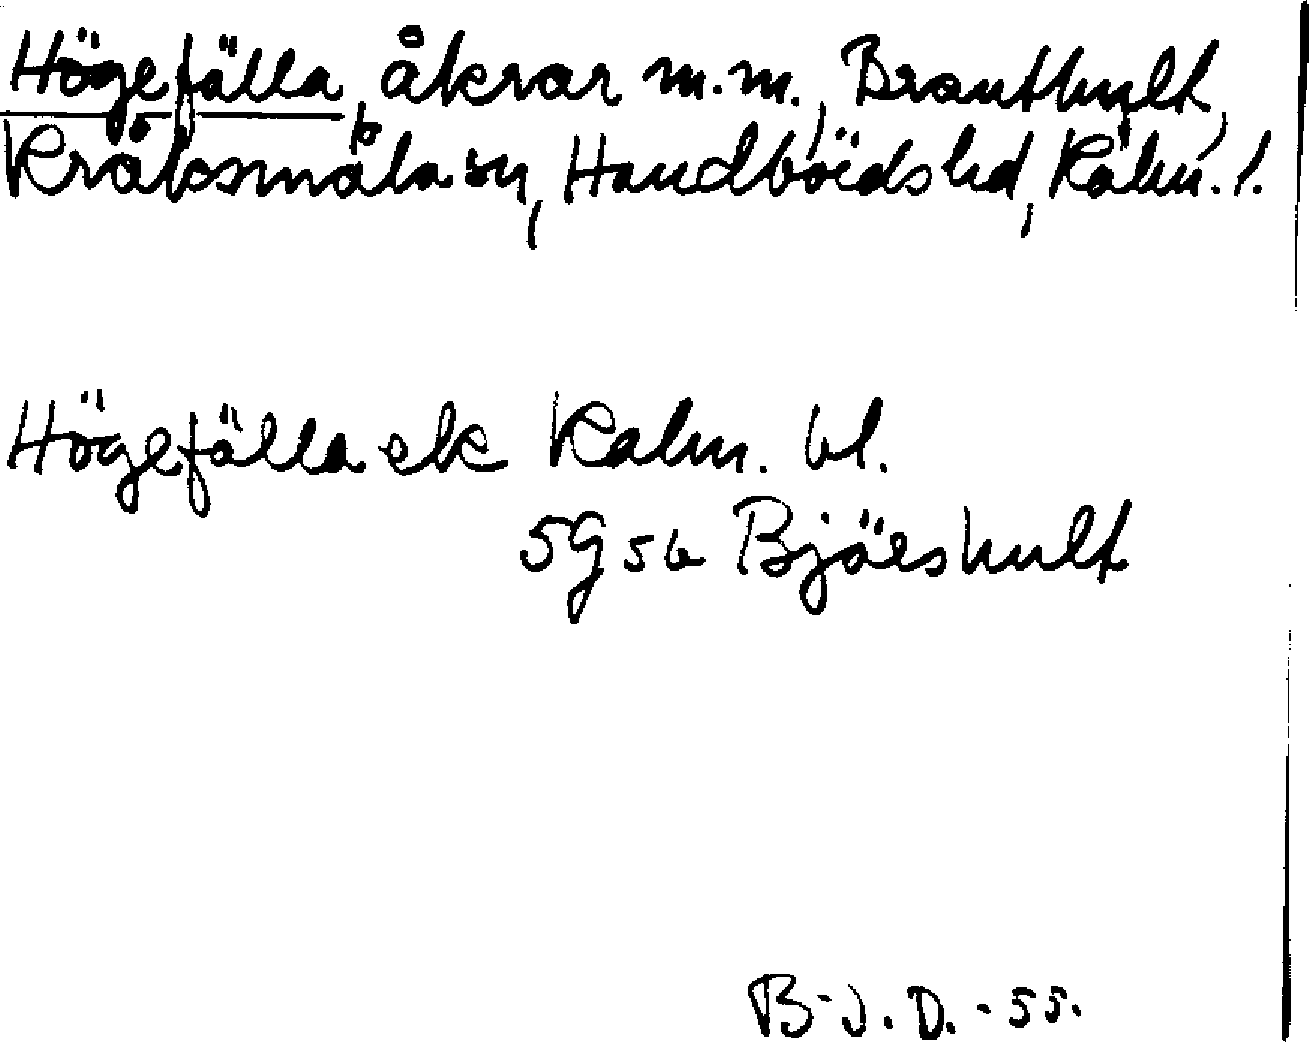 Högefälla, åkrar m.m., Branthult,
Kråksmåla sn, Handbörds hd, Kalm. l.
Högefälla ek Kalm. bl.
5G 5b Bjärshult
B-J. D. -55.